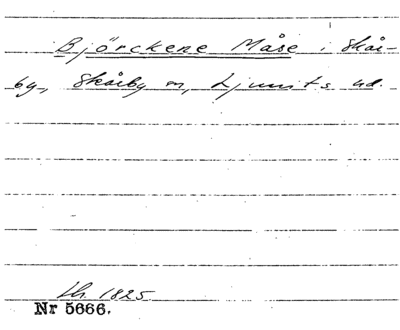 Björckene Måse i Skår-
by, Skårby sn, Ljunits hd.
Lh. 1825
Nr 5666.